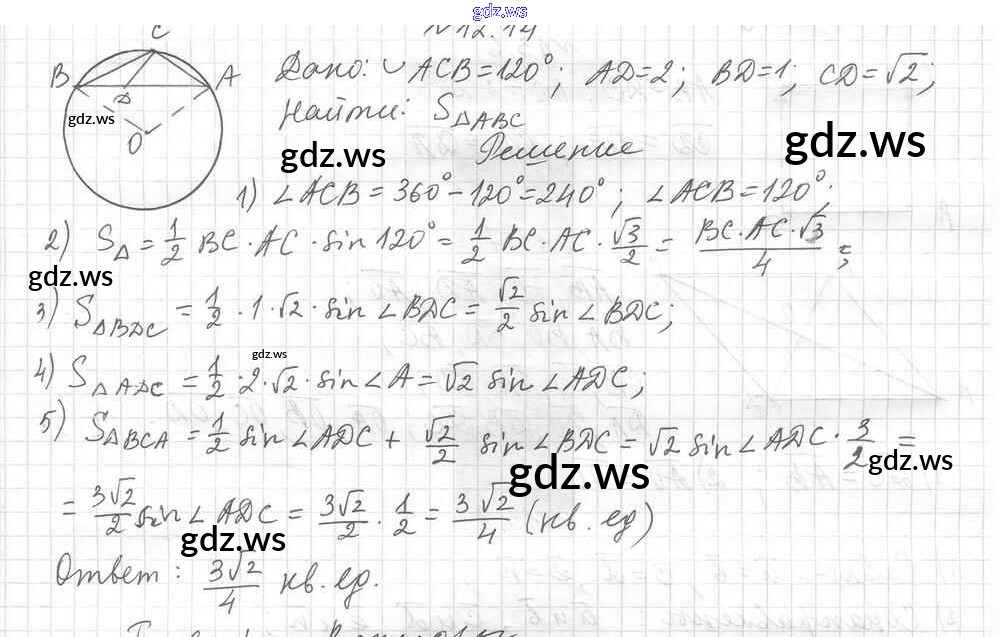 gdz.ws
N 12.14
C
B
A
D
O
Дано: ◡ACB=120°; AD=2; BD=1; CD=√2;
gdz.ws
Найти: S△ABC
gdz.ws
gdz.ws
Решение
1) ∠ACB = 360° - 120° = 240°; ∠ACB = 120°;
2) S△ = 1/2 BC · AC · sin 120° = 1/2 BC · AC · √3/2 = BC·AC·√3/4;
gdz.ws
3) S△BDC = 1/2 · 1 · √2 · sin ∠BDC = √2/2 sin ∠BDC;
gdz.ws
4) S△ADC = 1/2 · 2 · √2 · sin ∠A = √2 sin ∠ADC;
5) S△BCA = 1/2 sin ∠ADC + √2/2 sin ∠BDC = √2 sin ∠ADC · 3/2 =
gdz.ws
gdz.ws
= 3√2/2 sin ∠ADC = 3√2/2 · 1/2 = 3√2/4 (кв. ед)
gdz.ws
Ответ: 3√2/4 кв. ед.